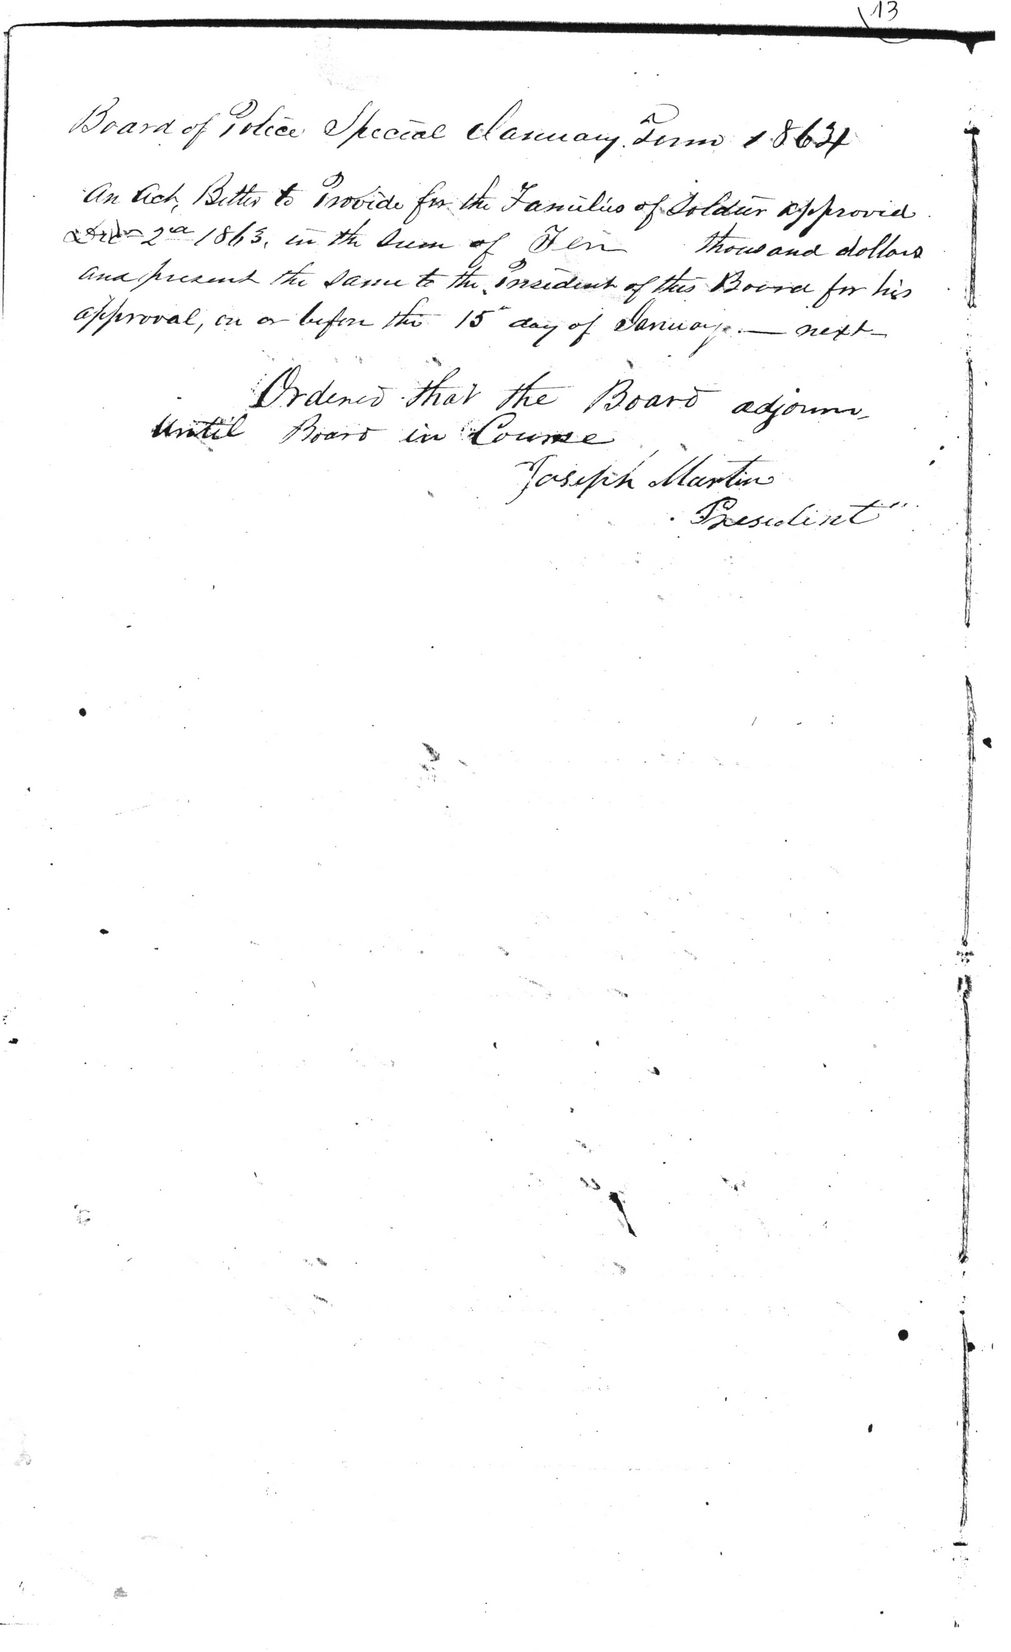 13
Board of Police Special January Term 1864
An Act, Better to Provide for the Families of Soldier approved
Decr 2d 1863, in the sum of Ten thousand dollars
and present the same to the President of this Board for his
approval, on or before the 15th day of January — next
Ordered that the Board adjourn
until Board in Course
Joseph Martin
President